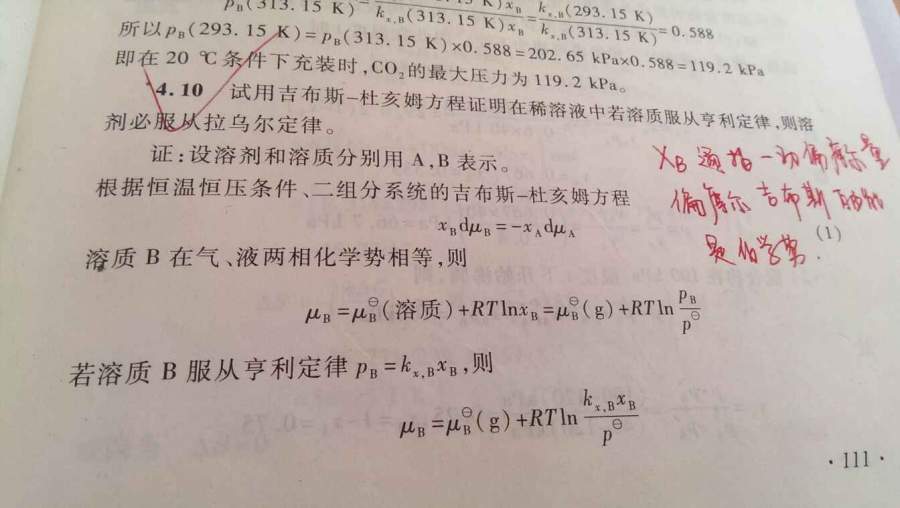 p_B(313.15 K) k_{x,B}(313.15 K)x_B k_{x,B}(313.15 K)
x_B k_{x,B}(293.15 K)
=0.588
所以p_B(293.15 K)=p_B(313.15 K)×0.588=202.65 kPa×0.588=119.2 kPa
即在 20 ℃条件下充装时,CO₂的最大压力为 119.2 kPa。
4.10 试用吉布斯-杜亥姆方程证明在稀溶液中若溶质服从亨利定律,则溶
剂必服从拉乌尔定律。
证:设溶剂和溶质分别用 A,B 表示。
根据恒温恒压条件、二组分系统的吉布斯-杜亥姆方程
x_B dμ_B=-x_A dμ_A
(1)
X_B 通指一切偏摩尔量
偏摩尔吉布斯
是化学势.
溶质 B 在气、液两相化学势相等,则
μ_B=μ_B^⊖(溶质)+RTlnx_B=μ_B^⊖(g)+RTln p_B/p^⊖
若溶质 B 服从亨利定律 p_B=k_{x,B}x_B,则
μ_B=μ_B^⊖(g)+RTln k_{x,B}x_B/p^⊖
·111·